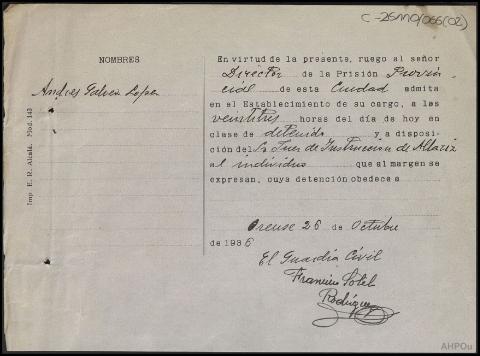 C-25110/066(02)
NOMBRES
Andres Galvez Lopez
Imp. E. R. Alcalá. Mod. 143
En virtud de la presente, ruego al señor
Director de la Prisión Provin
cial de esta Ciudad admita
en el Establecimiento de su cargo, a las
veintitres horas del día de hoy en
clase de detenido y a disposi
ción del Sr Juez de Instruccion de Allariz
al individuo que al margen se
expresan, cuya detención obedece a
Orense 26 de Octubre
de 1936
El Guardia Civil
Francisco Sotel
Rodriguez
AHPOu